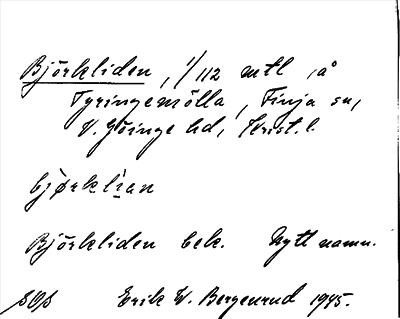 Björkliden, 1/112 mtl, å
Tyringemölla, Finja sn,
V. Göinge hd, Krist. l.
bjørklian
Björkliden bek. Nytt namn.
Erik W. Bergenrud 1945.